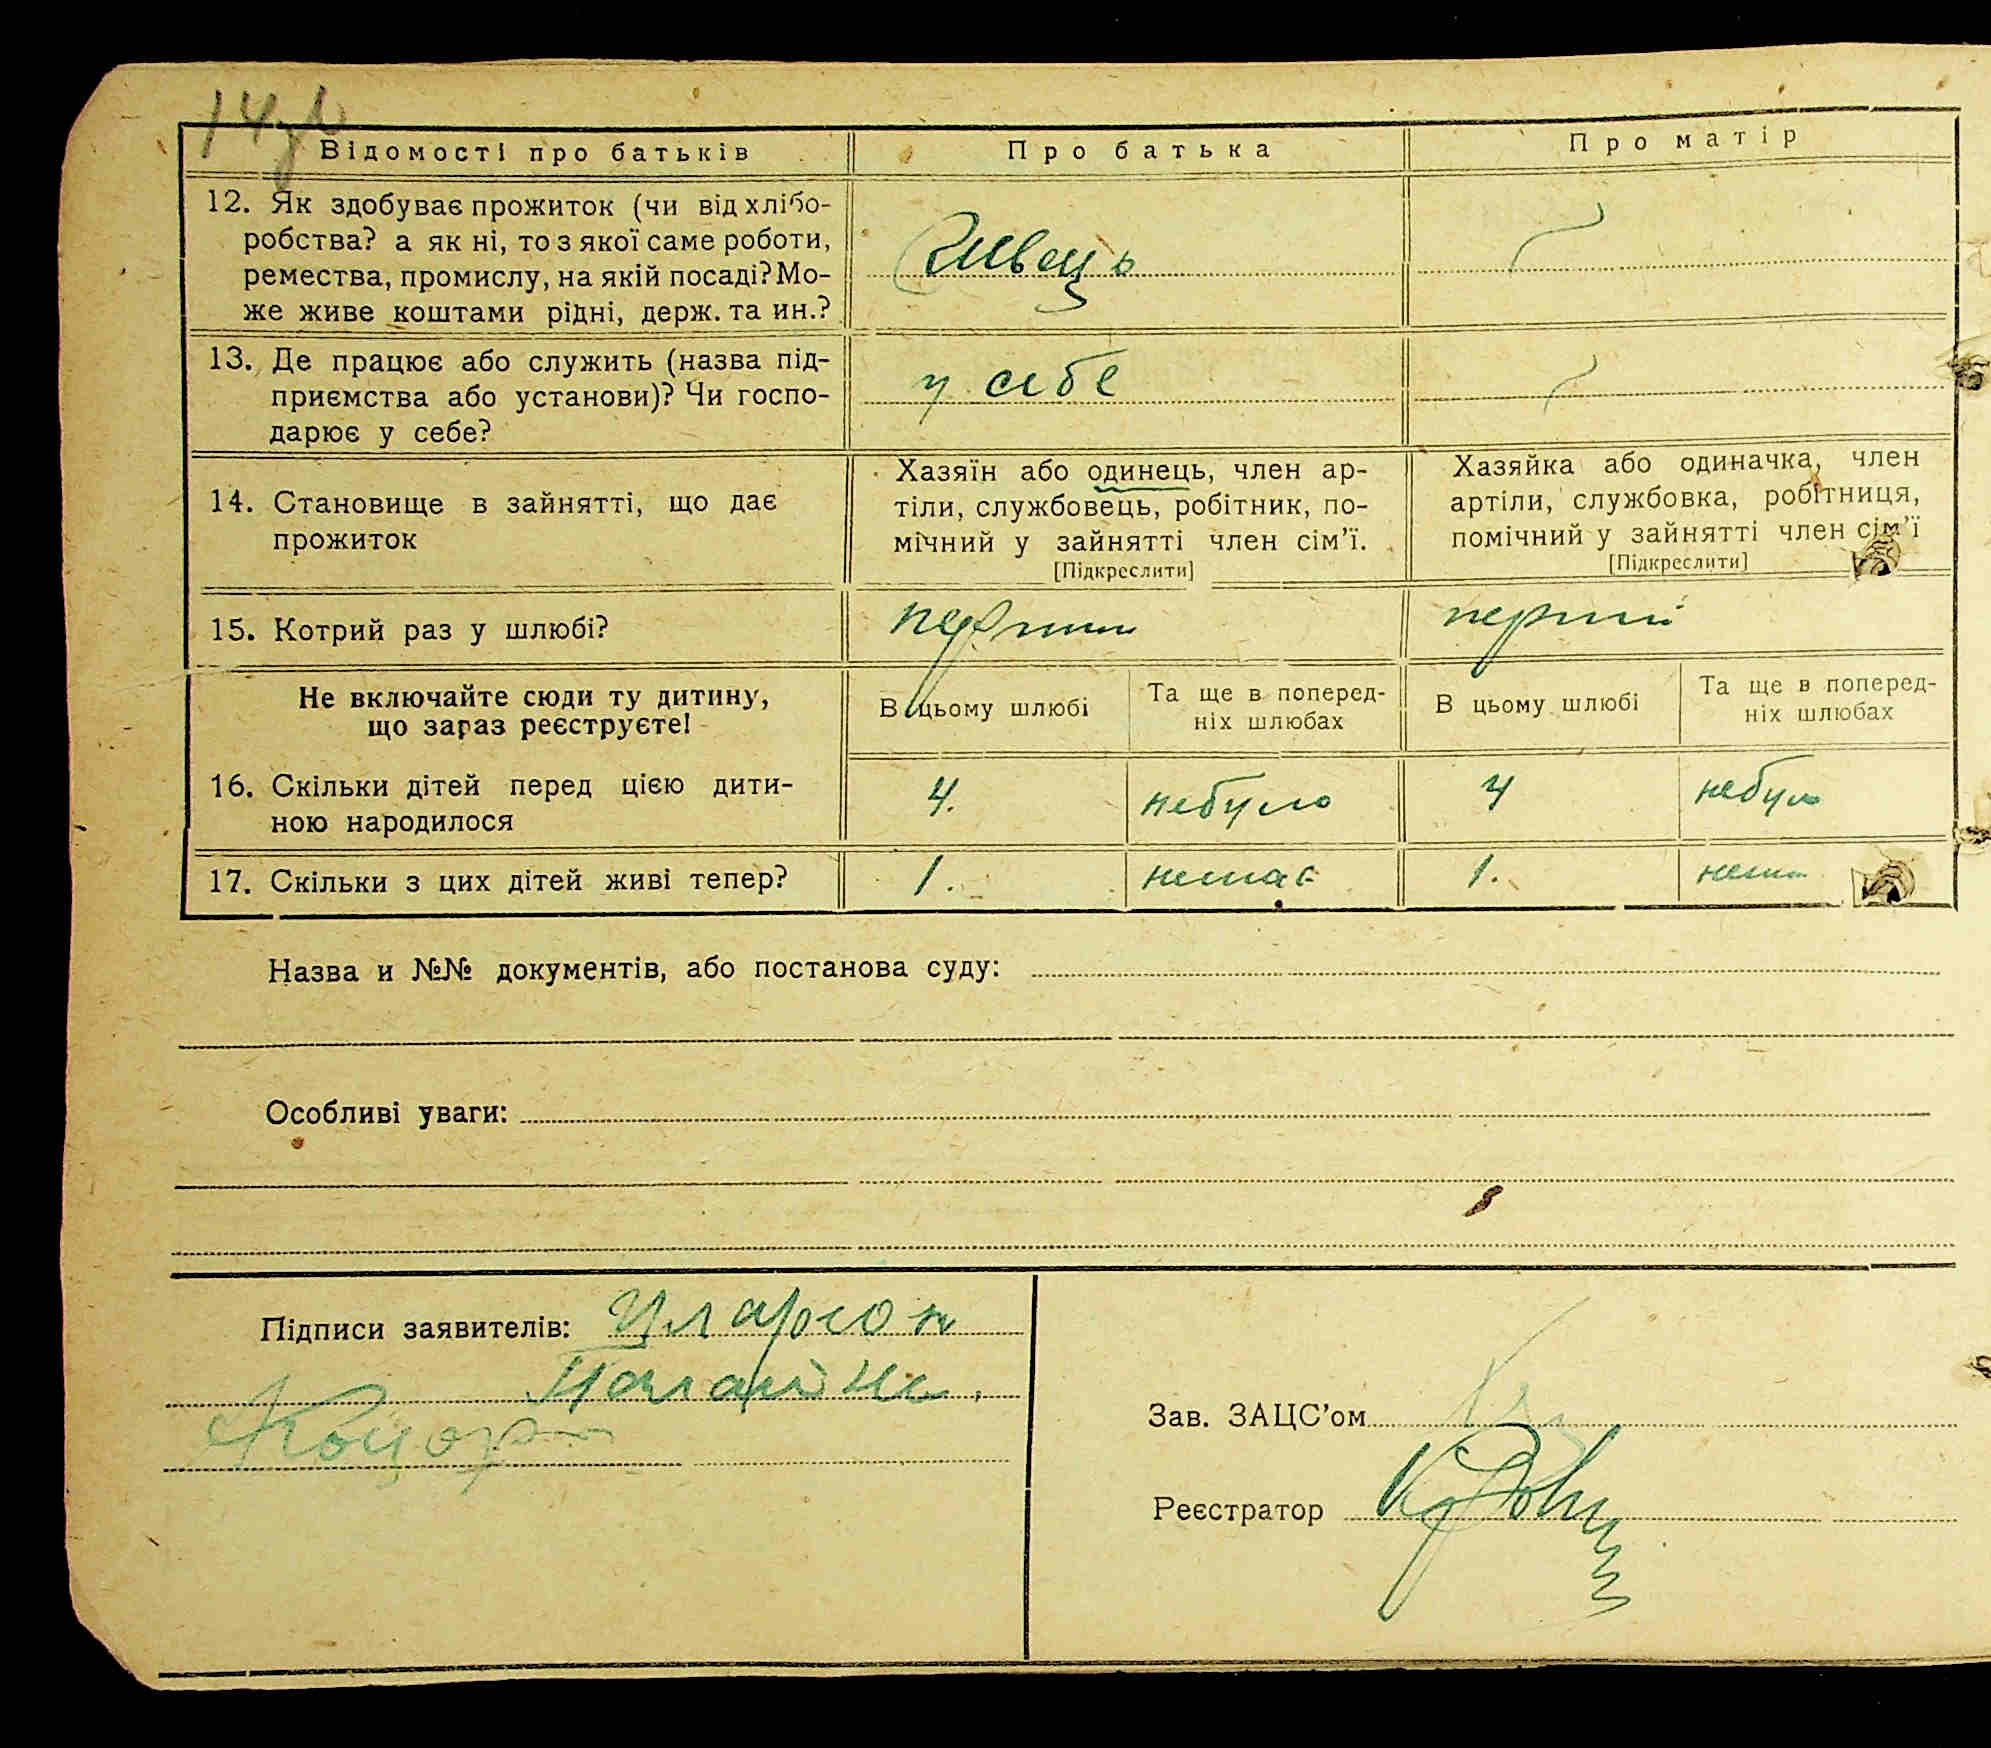 Відомості про батьків
Про батька
Про матір
12. Як здобуває прожиток (чи від хлібо-
робства? а як ні, то з якої саме роботи,
ремества, промислу, на якій посаді? Мо-
же живе коштами рідні, держ. та ин.?
швець
13. Де працює або служить (назва під-
приємства або установи)? Чи госпо-
дарює у себе?
у себе
14. Становище в зайнятті, що дає
прожиток
Хазяїн або одинець, член ар-
тіли, службовець, робітник, по-
мічний у зайнятті член сім’ї.
[Підкреслити]
Хазяйка або одиначка, член
артіли, службовка, робітниця,
помічний у зайнятті член сім’ї
[Підкреслити]
15. Котрий раз у шлюбі?
перший
перший
Не включайте сюди ту дитину,
що зараз реєструєте!
В цьому шлюбі
Та ще в поперед-
ніх шлюбах
В цьому шлюбі
Та ще в поперед-
ніх шлюбах
16. Скільки дітей перед цією дити-
ною народилося
4.
небуло
4
небуло
17. Скільки з цих дітей живі тепер?
1.
немає
1.
нема
Назва и №№ документів, або постанова суду:
Особливі уваги:
Підписи заявителів:
Зав. ЗАЦС’ом
Реєстратор